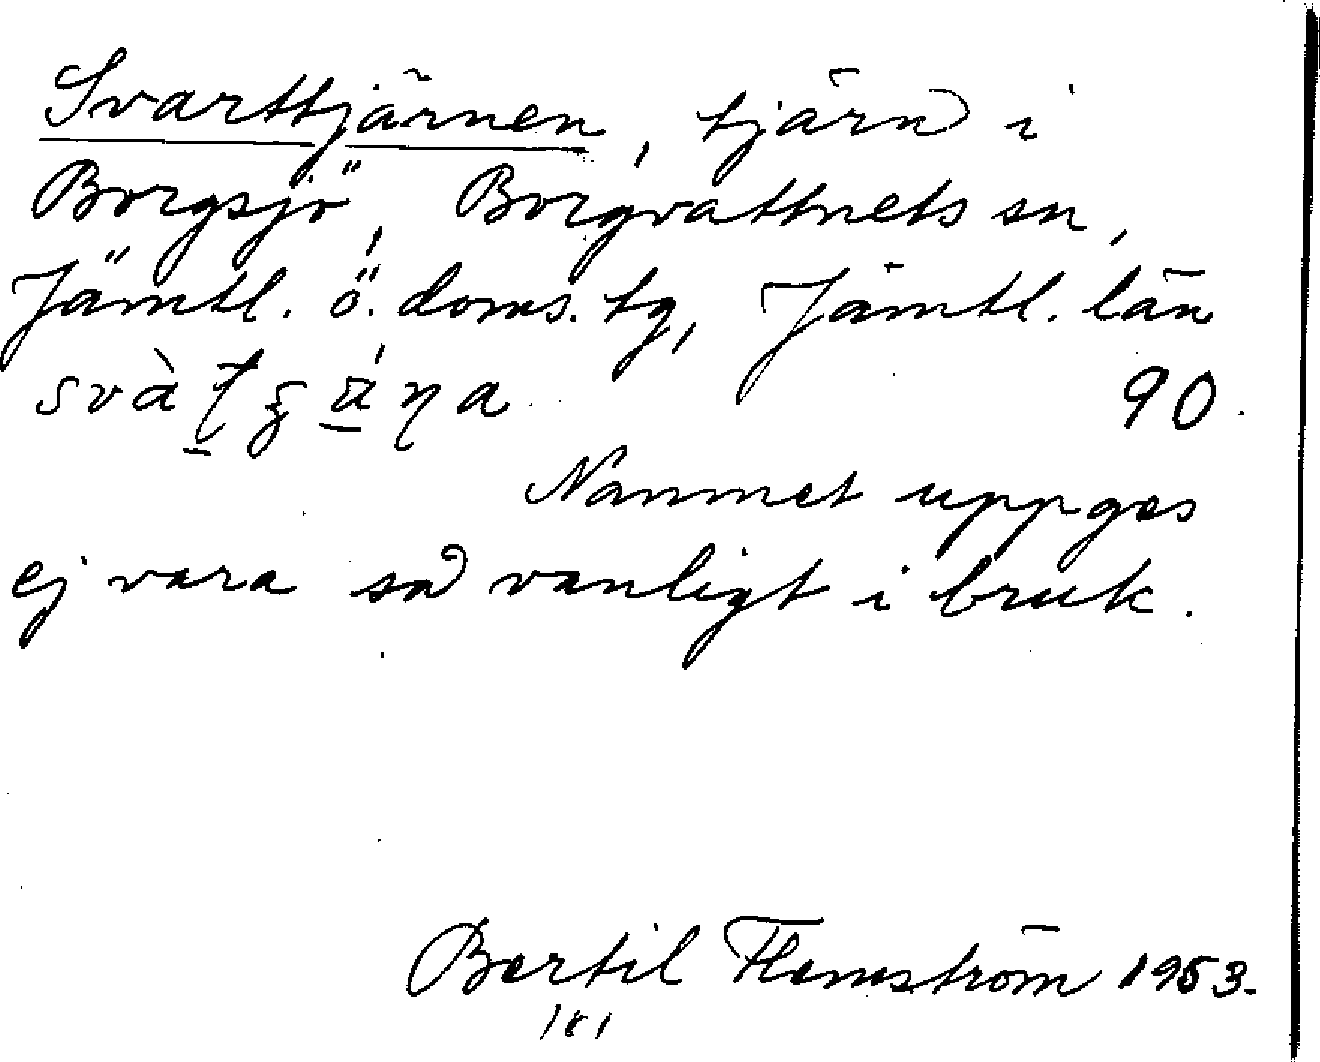 Svarttjärnen, tjärn i
Borgsjö, Borgvattnets sn,
Jämtl. ö. doms. tg, Jämtl. län
90.
Namnet uppges
ej vara så vanligt i bruk.
Bertil Flemström 1953.